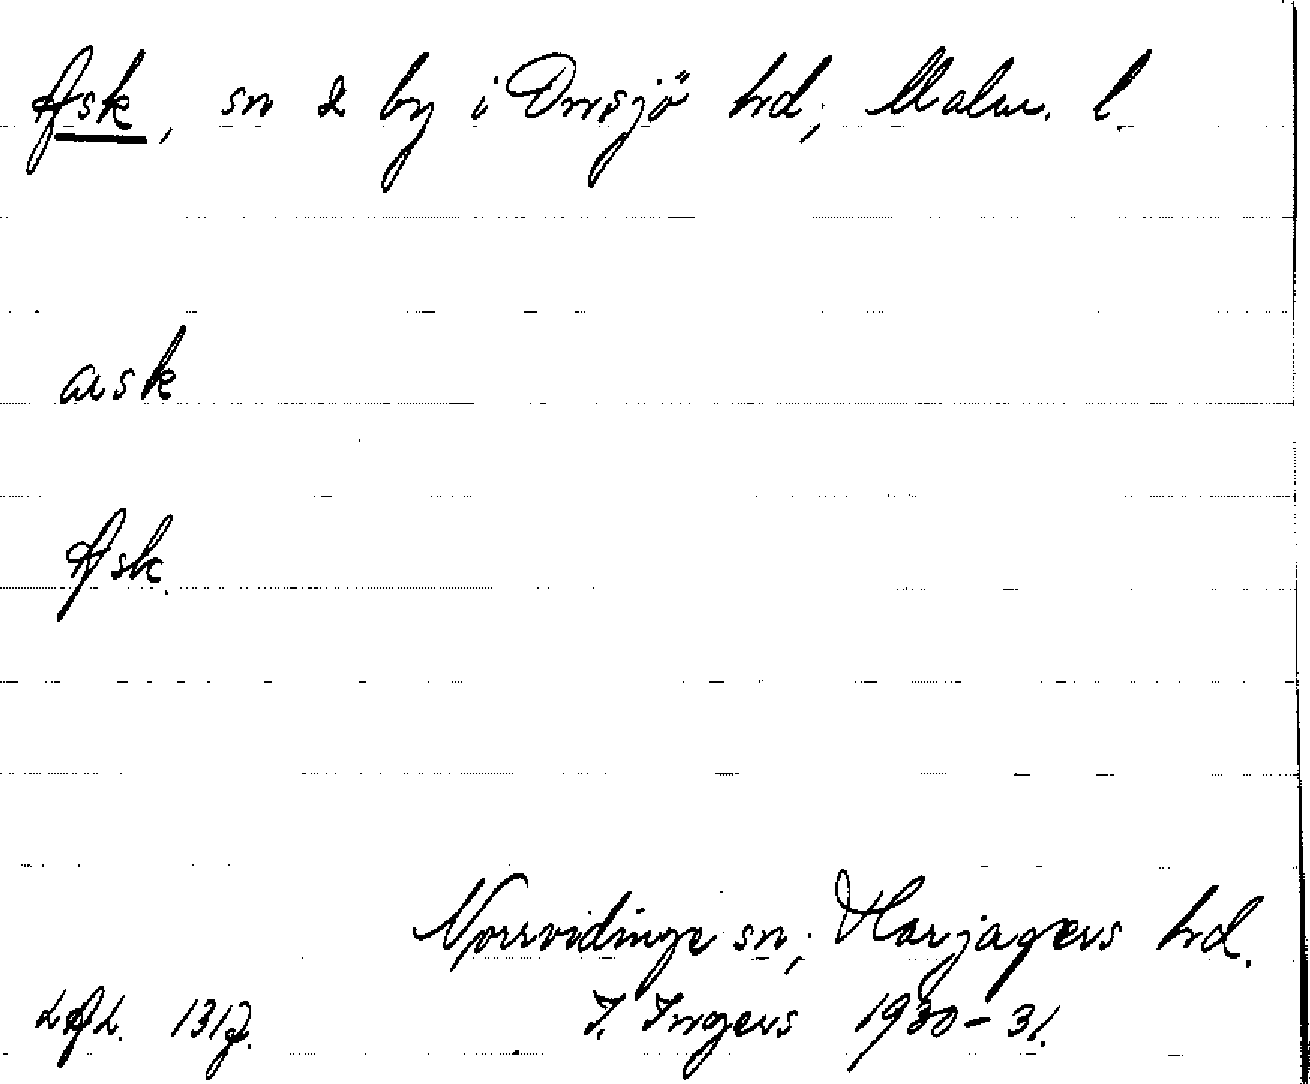 Ask, sn & by i Onsjö hrd; Malm. l.
ask
Ask.
Norrvidinge sn; Harjagers hrd.
LAL. 1317. I. Ingers 1930-31.